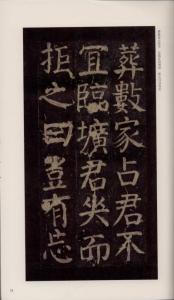 葬數家占君不
冝臨壙君哭而
拒之曰豈有忘